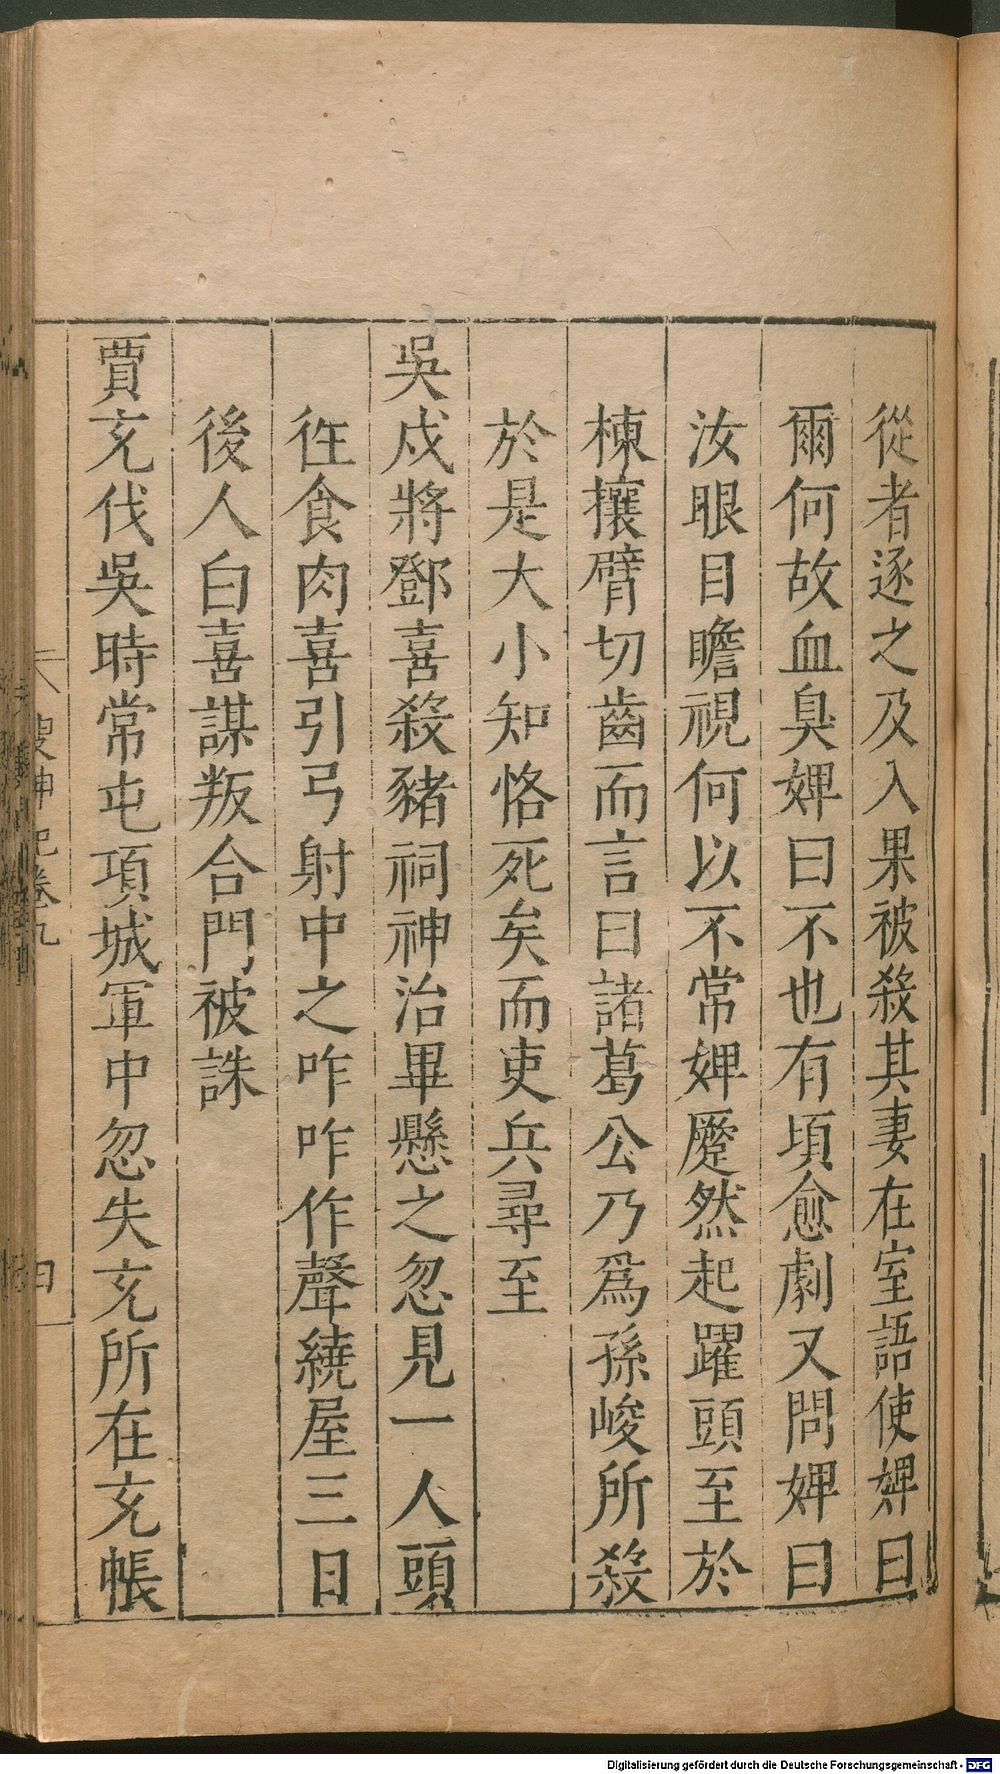 從者逐之及入果被殺其妻在室語使婢曰
爾何故血臭婢曰不也有頃愈劇又問婢曰
汝眼目瞻視何以不常婢蹷然起躍頭至於
棟攘臂切齒而言曰諸葛公乃爲孫峻所殺
於是大小知恪死矣而吏兵尋至
吳戍將鄧喜殺豬祠神治畢懸之忽見一人頭
徃食肉喜引弓射中之咋咋作聲繞屋三日
後人白喜謀叛合門被誅
賈充伐吳時常屯項城軍中忽失充所在充帳
搜神記卷九
四
Digitalisierung gefördert durch die Deutsche Forschungsgemeinschaft - DFG